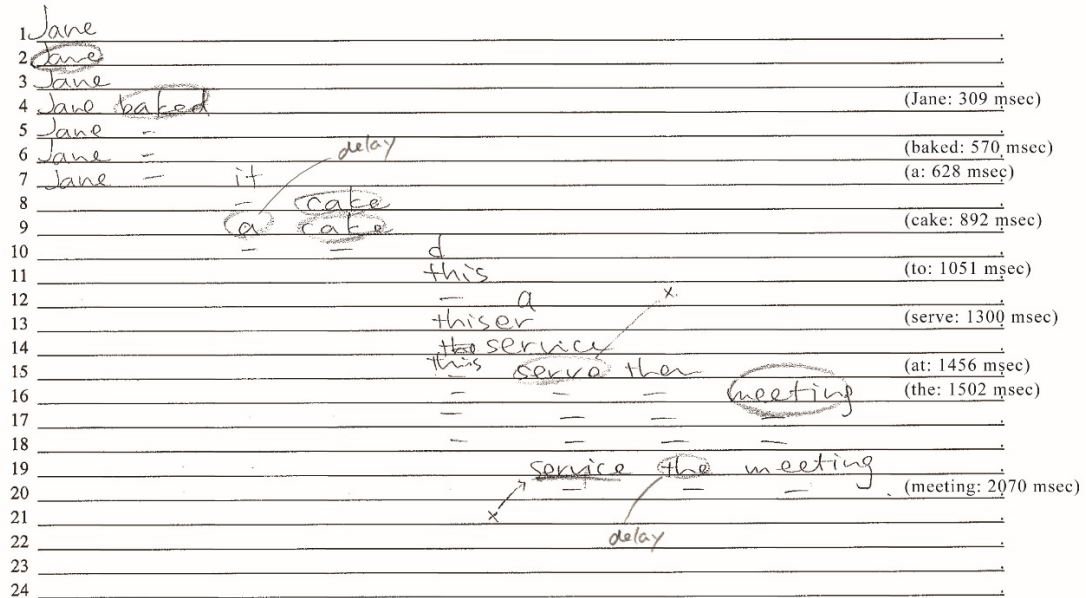 1 Jane .
2 Jane .
3 Jane .
4 Jane baked (Jane: 309 msec)
5 Jane - .
6 Jane - (baked: 570 msec)
delay
7 Jane - it (a: 628 msec)
8 - cake .
9 a cake (cake: 892 msec)
10 - - d .
11 this (to: 1051 msec)
12 - a x .
13 thiser (serve: 1300 msec)
14 service .
15 this serve then (at: 1456 msec)
16 - - - meeting (the: 1502 msec)
17 - - - - .
18 - - - - .
19 service the meeting .
20 - - - . (meeting: 2070 msec)
21 x .
22 delay .
23 .
24 .